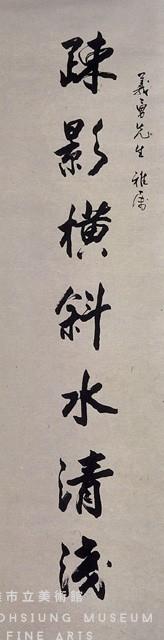 義勇先生雅屬
疎影橫斜水清淺
市立美術館
OHSIUNG MUSEUM
FINE ARTS